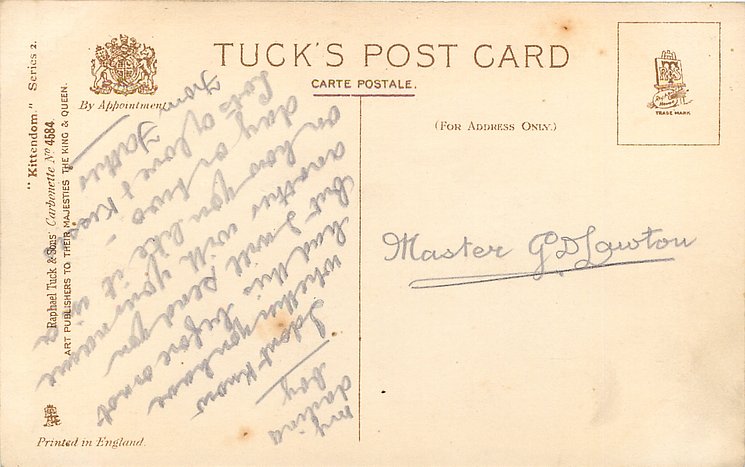 TUCK'S POST CARD
CARTE POSTALE.
By Appointment
(FOR ADDRESS ONLY.)
TRADE MARK
"Kittendom." Series 2.
Raphael Tuck & Sons' Carbonette No 4584.
ART PUBLISHERS TO THEIR MAJESTIES THE KING & QUEEN.
Printed in England.
My
darling
boy
I dont know
whether you have
had this before or not
but I will send you
another with your name
on how you like it in a
day or two –
Lots of love & kisses
From Father
Master G D Lawton